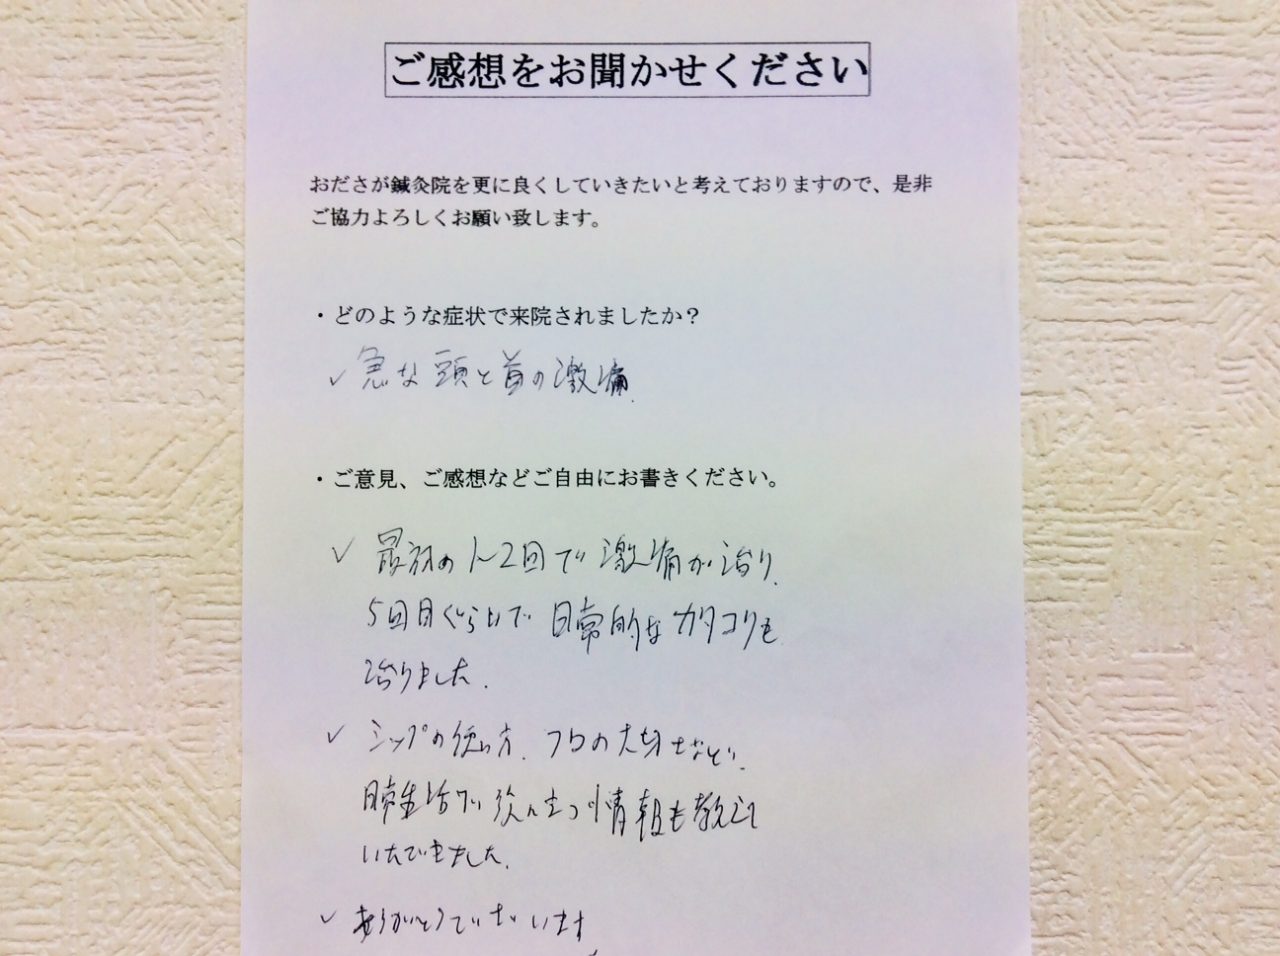 ご感想をお聞かせください
おださが鍼灸院を更に良くしていきたいと考えておりますので、是非
ご協力よろしくお願い致します。
・どのような症状で来院されましたか？
✓ 急な頭と首の激痛.
・ご意見、ご感想などご自由にお書きください。
✓ 最初の1~2回で激痛が治り、
5回目ぐらいで日常的なカタコリも
治りました.
✓ シップの使い方、フロの大切さなど、
日常生活で役に立つ情報も教えて
いただきました.
✓ ありがとうございます